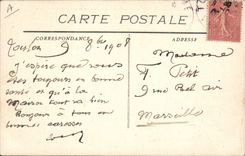 CARTE POSTALE
CORRESPONDANCE
ADRESSE
Toulon 9 8bre 1908
J'espère que vous
êtes toujours en bonne
santé et qu'à la
maison tout va bien
Bonjour à tous et
bonnes caresses
Madame
A. Petit
Rue Bel air
Marseille